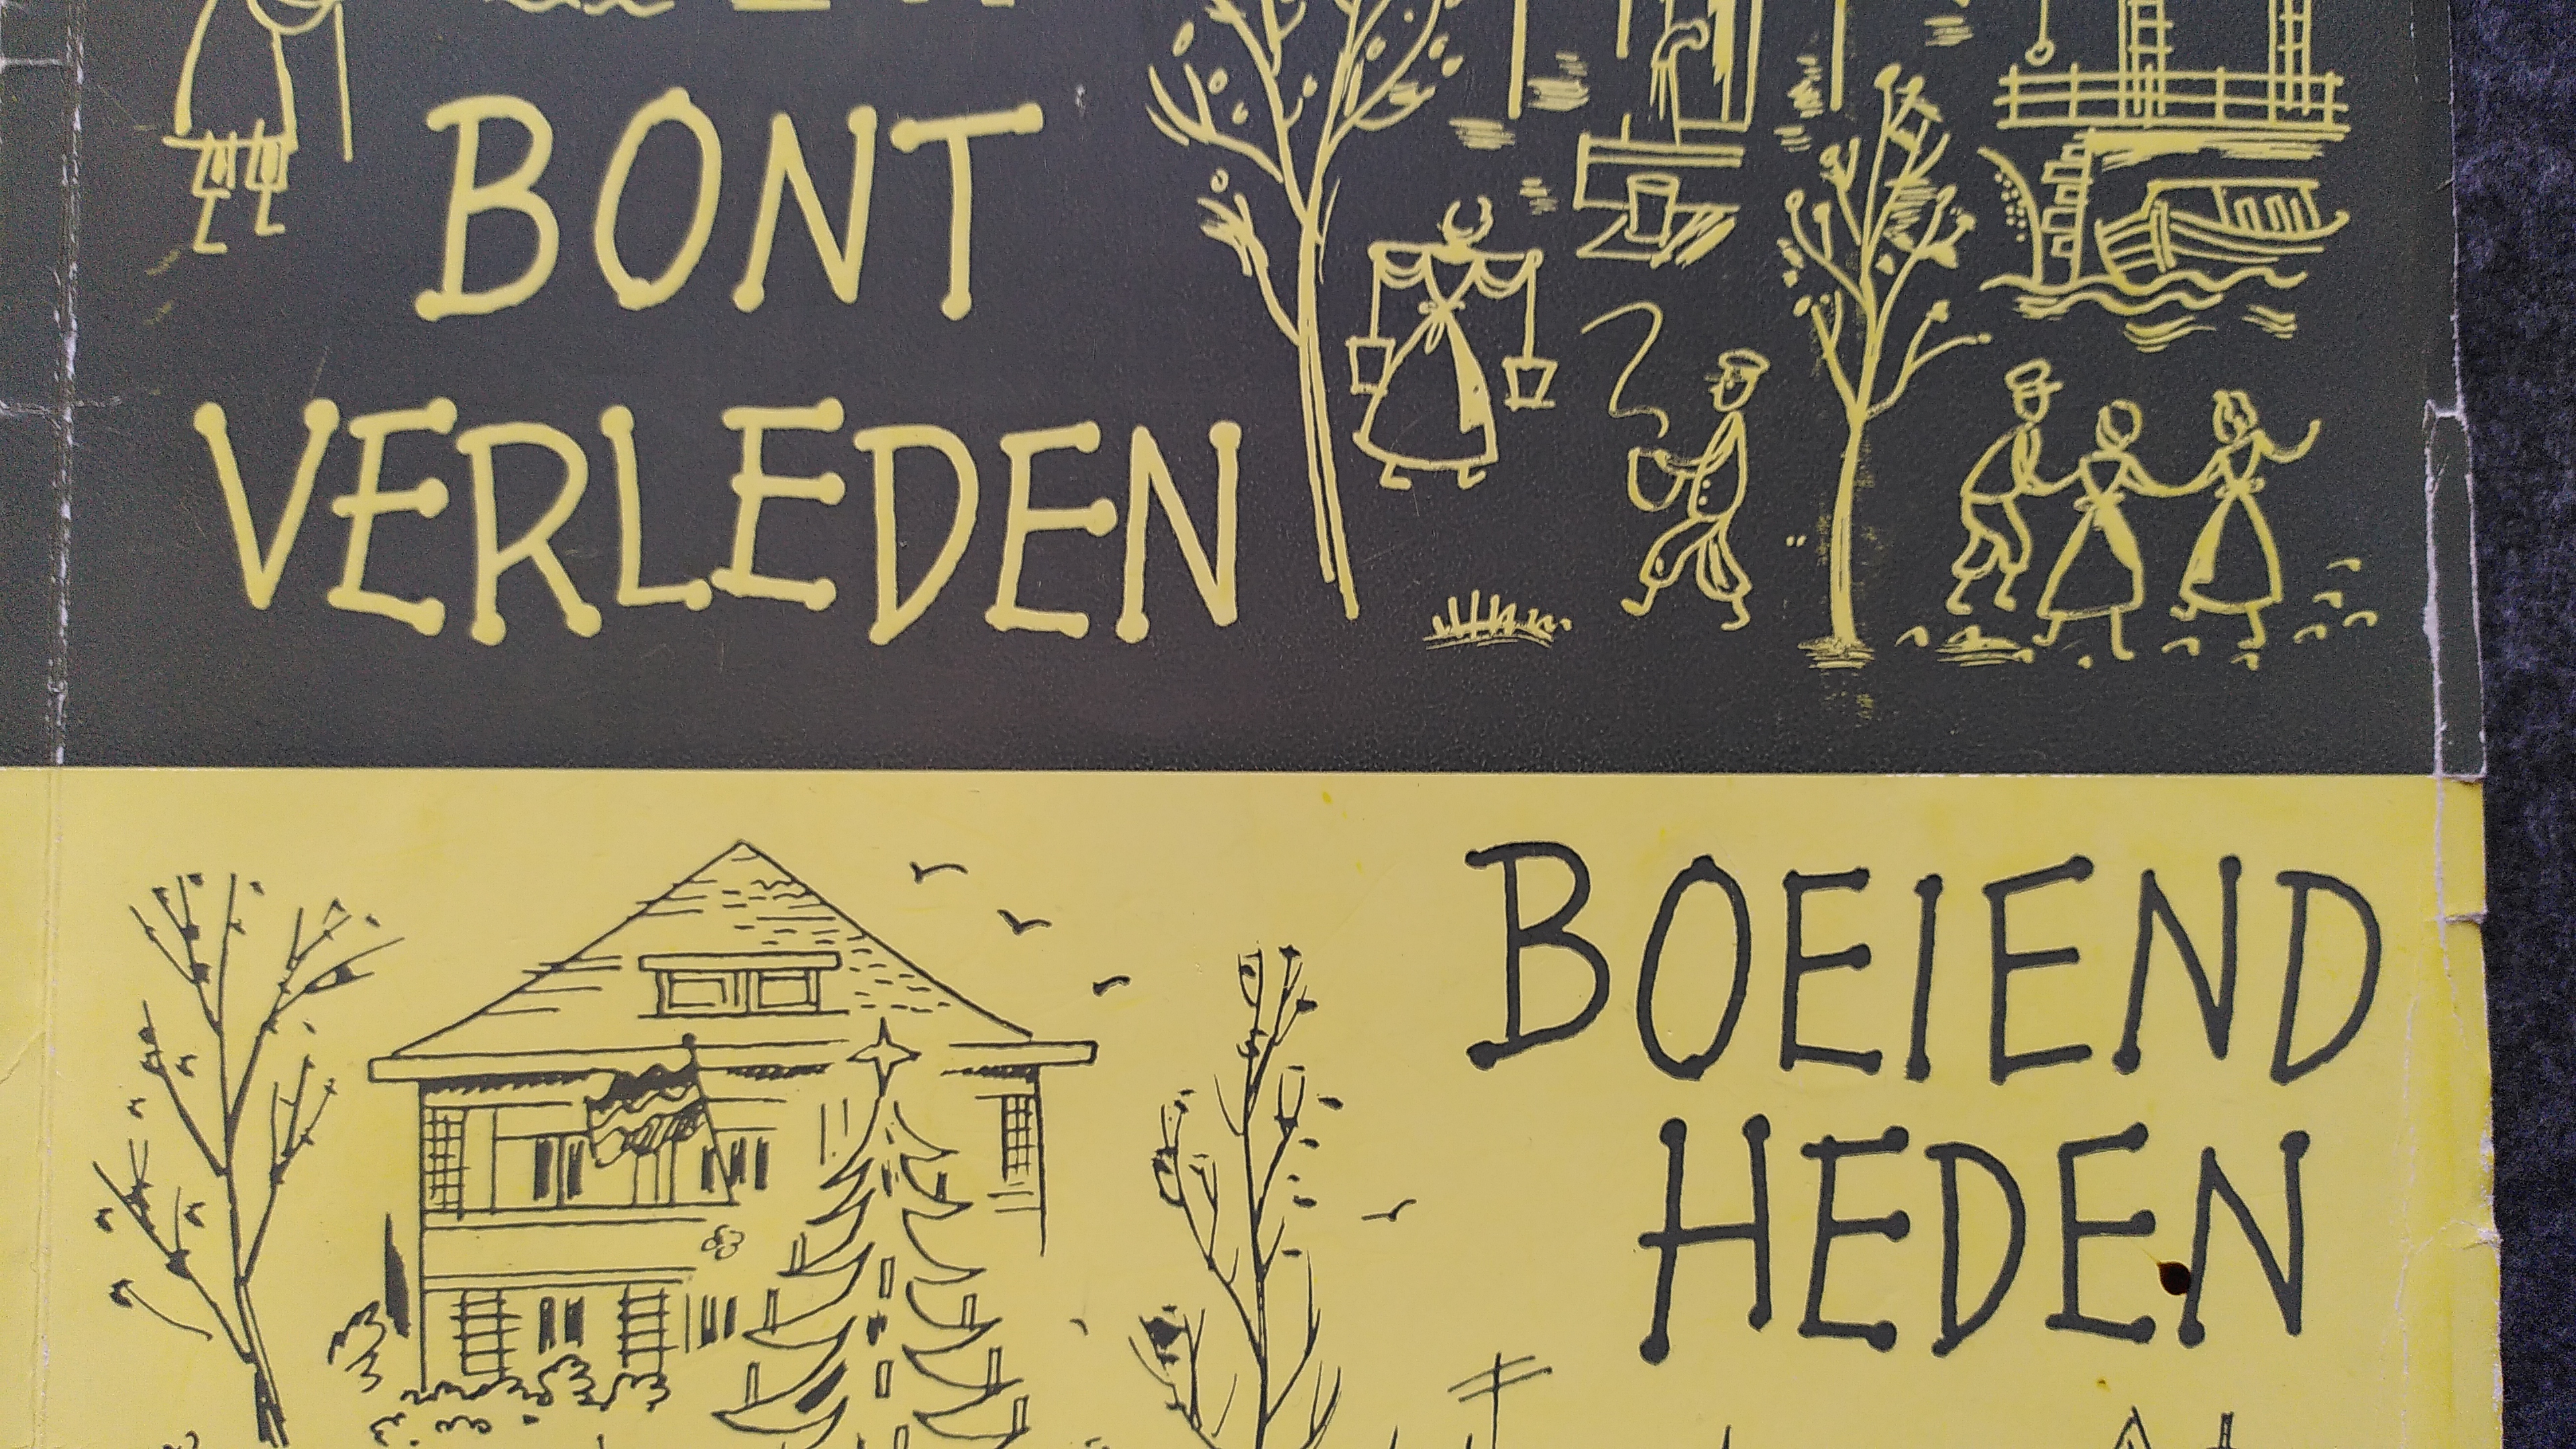 BONT
VERLEDEN
BOEIEND
HEDEN